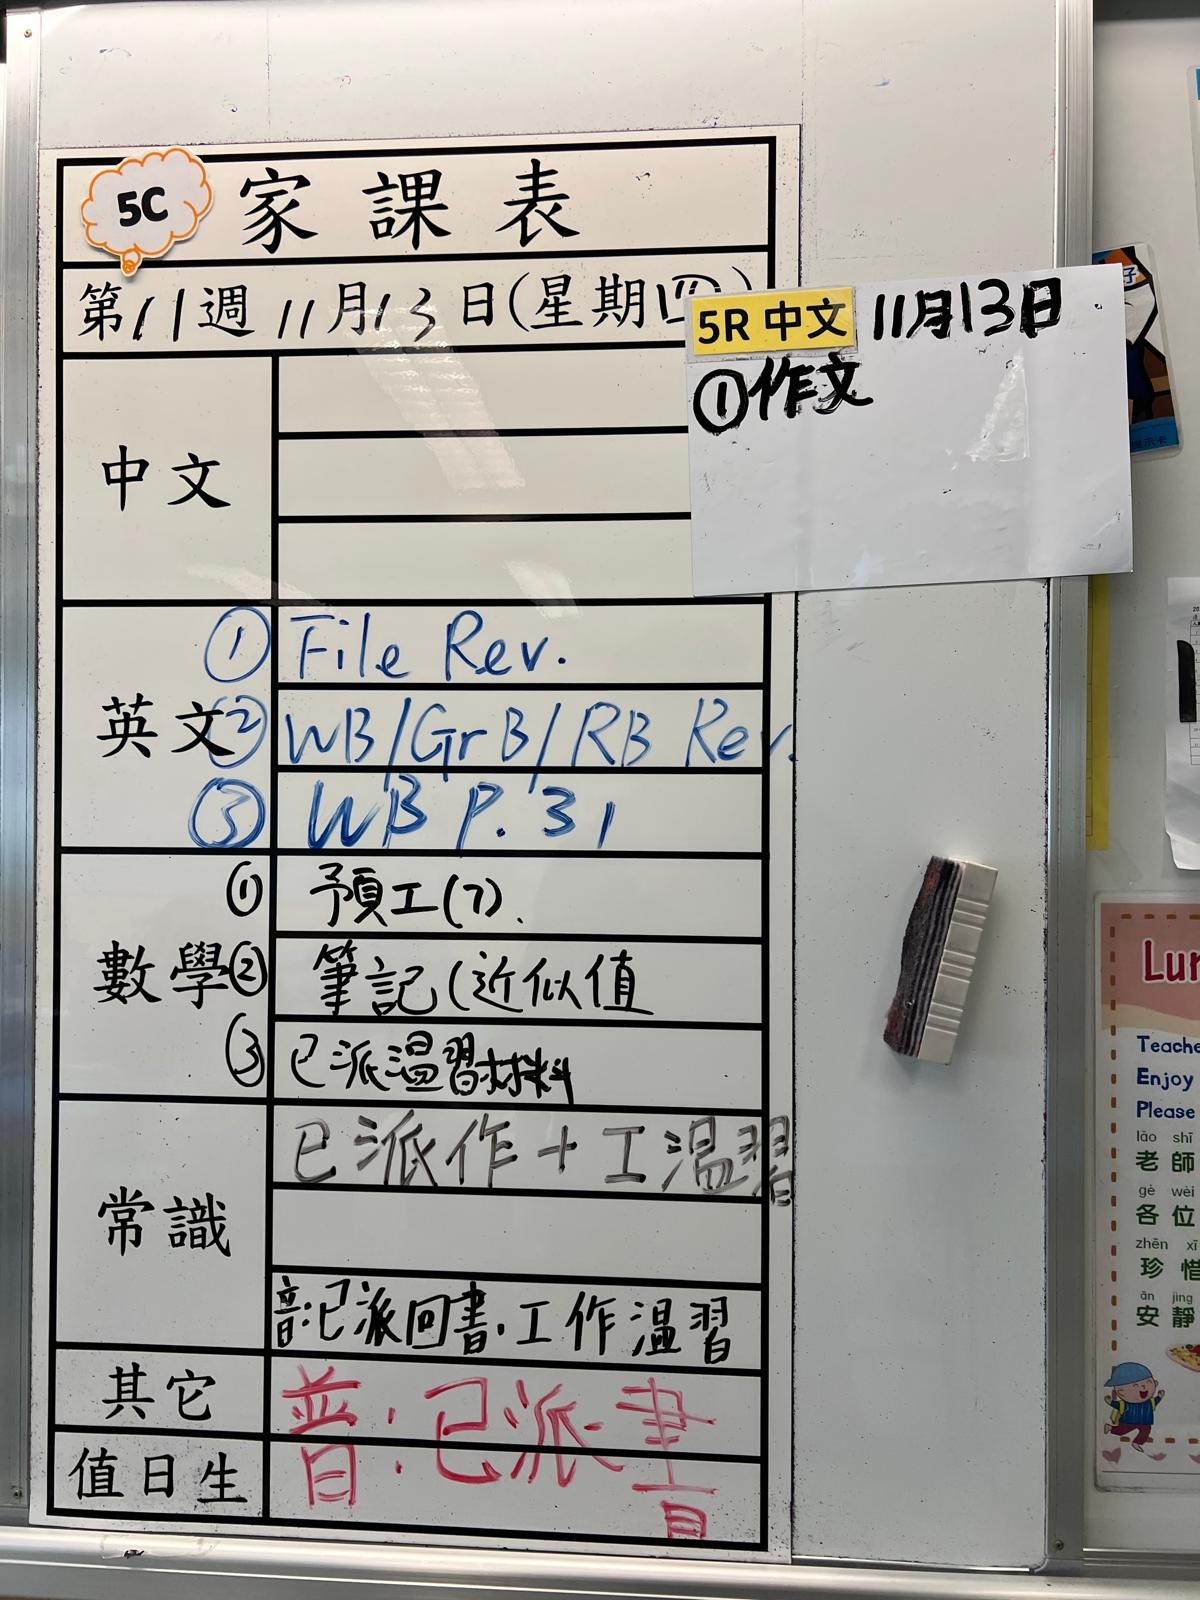 5C
家課表
第11週 11月13日(星期四)
5R 中文 11月13日
①作文
中文
英文
① File Rev.
② WB/GrB/RB Rev.
③ WB P. 31
數學
① 預工(7).
② 筆記(近似值
③ 已派溫習材料
常識
已派作+工溫習
音:已派回書.工作溫習
其它
普:已派書
值日生
子
提示卡
Lun
Teache
Enjoy
Please
lǎo shī
老師
gè wèi
各位
zhēn xī
珍惜
ān jìng
安靜